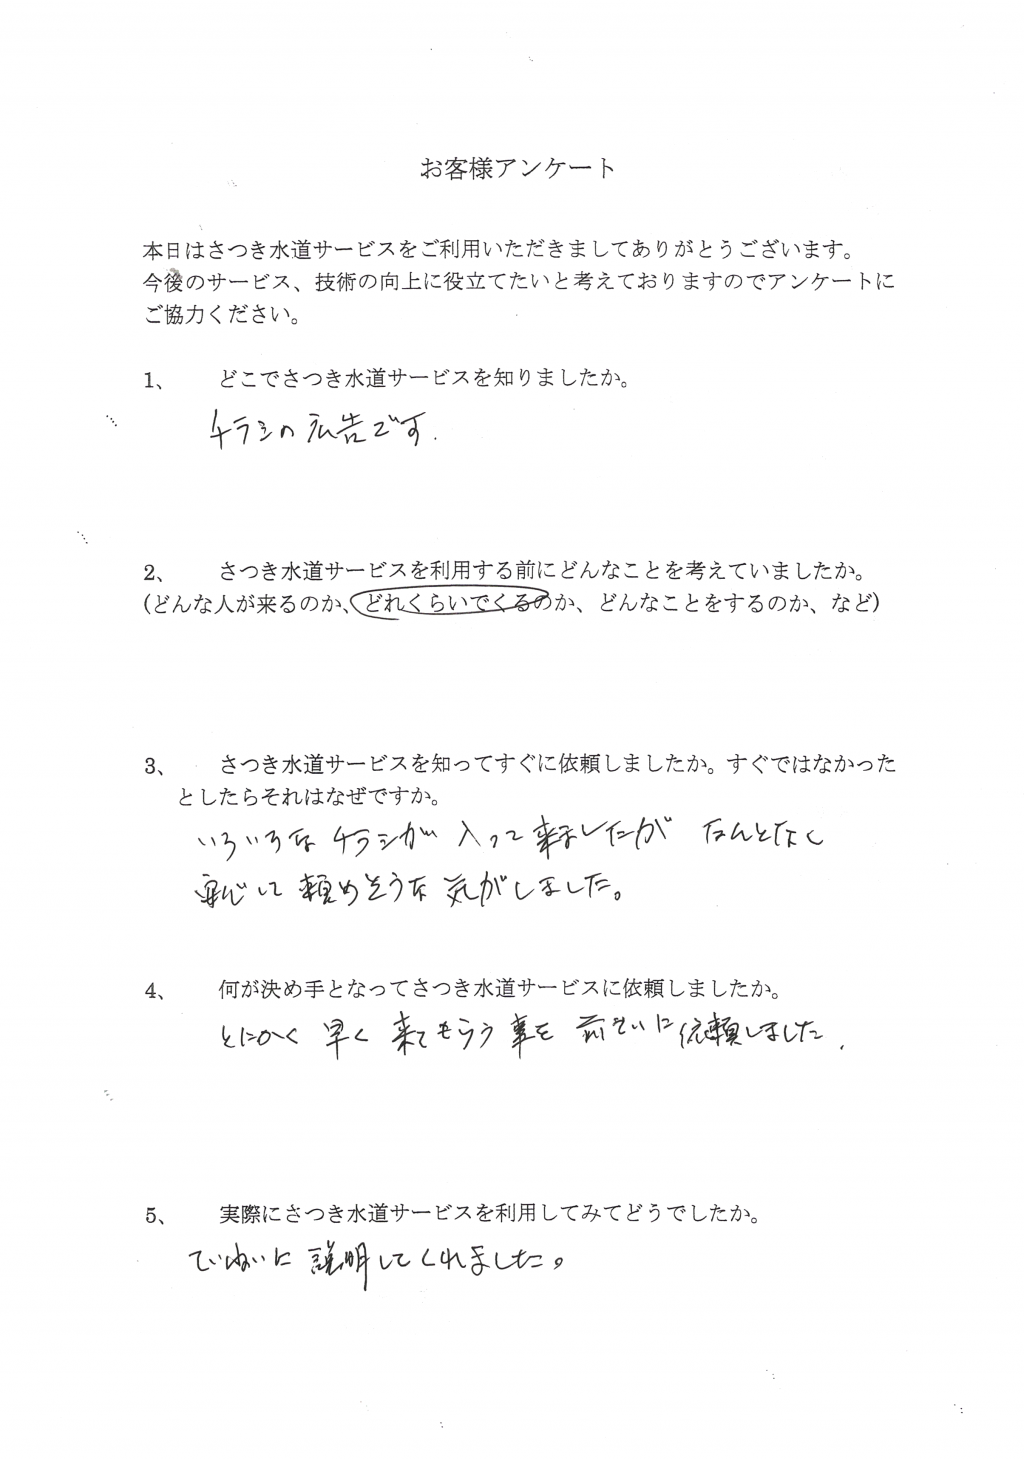 お客様アンケート
本日はさつき水道サービスをご利用いただきましてありがとうございます。
今後のサービス、技術の向上に役立てたいと考えておりますのでアンケートに
ご協力ください。
1、 どこでさつき水道サービスを知りましたか。
チラシの広告です.
2、 さつき水道サービスを利用する前にどんなことを考えていましたか。
(どんな人が来るのか、どれくらいでくるのか、どんなことをするのか、など)
3、 さつき水道サービスを知ってすぐに依頼しましたか。すぐではなかった
としたらそれはなぜですか。
いろいろなチラシが入って来ましたが なんとなく
安心して頼めそうな気がしました。
4、 何が決め手となってさつき水道サービスに依頼しましたか。
とにかく早く来てもらう事を前ていに依頼しました.
5、 実際にさつき水道サービスを利用してみてどうでしたか。
ていねいに説明してくれました。